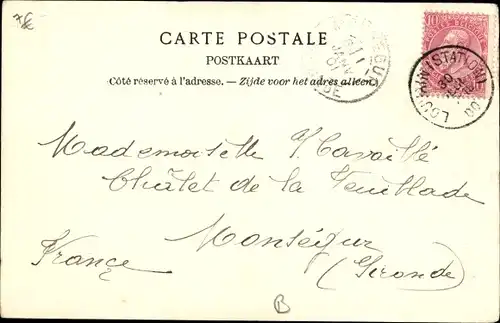 CARTE POSTALE
POSTKAART
Côté réservé à l'adresse. — Zijde voor het adres alleen.
10
LOUVAIN (STATION)
1
JANV
01
Mademoiselle Y. Cavaillé
Châlet de la Feuillade
Monségur
France (Gironde)
B